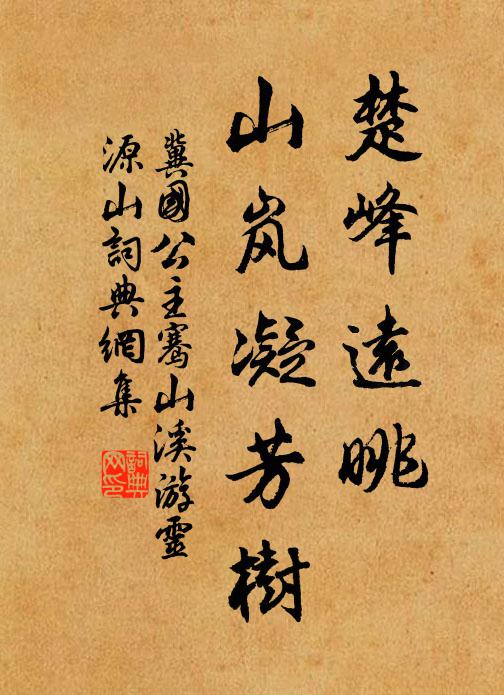 楚峰遠眺
山岚凝芳樹
冀國公主騫山溪游靈
源山詞典網集
詞典
网印